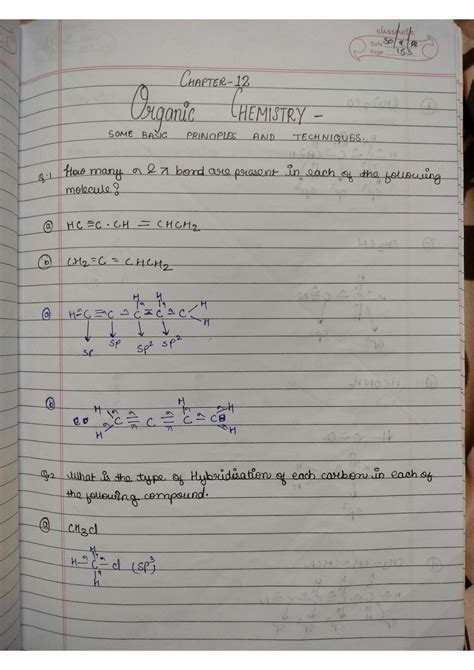 classmate
Date
Page 155
CHAPTER-12
ORGANIC CHEMISTRY -
SOME BASIC PRINCIPLES AND TECHNIQUES.
Q.1 How many σ & π bond are present in each of the following
molecule?
(a) HC≡C·CH = CHCH3
(b) CH2=C=CHCH3
(a) H-C≡C-C=C-C
H H H H
sp sp sp² sp²
(b) C=C=C-C
H H H H H
Q.2 What is the type of Hybridisation of each carbon in each of
the following compound.
(a) CH3Cl
H
H-C-Cl (sp³)
H